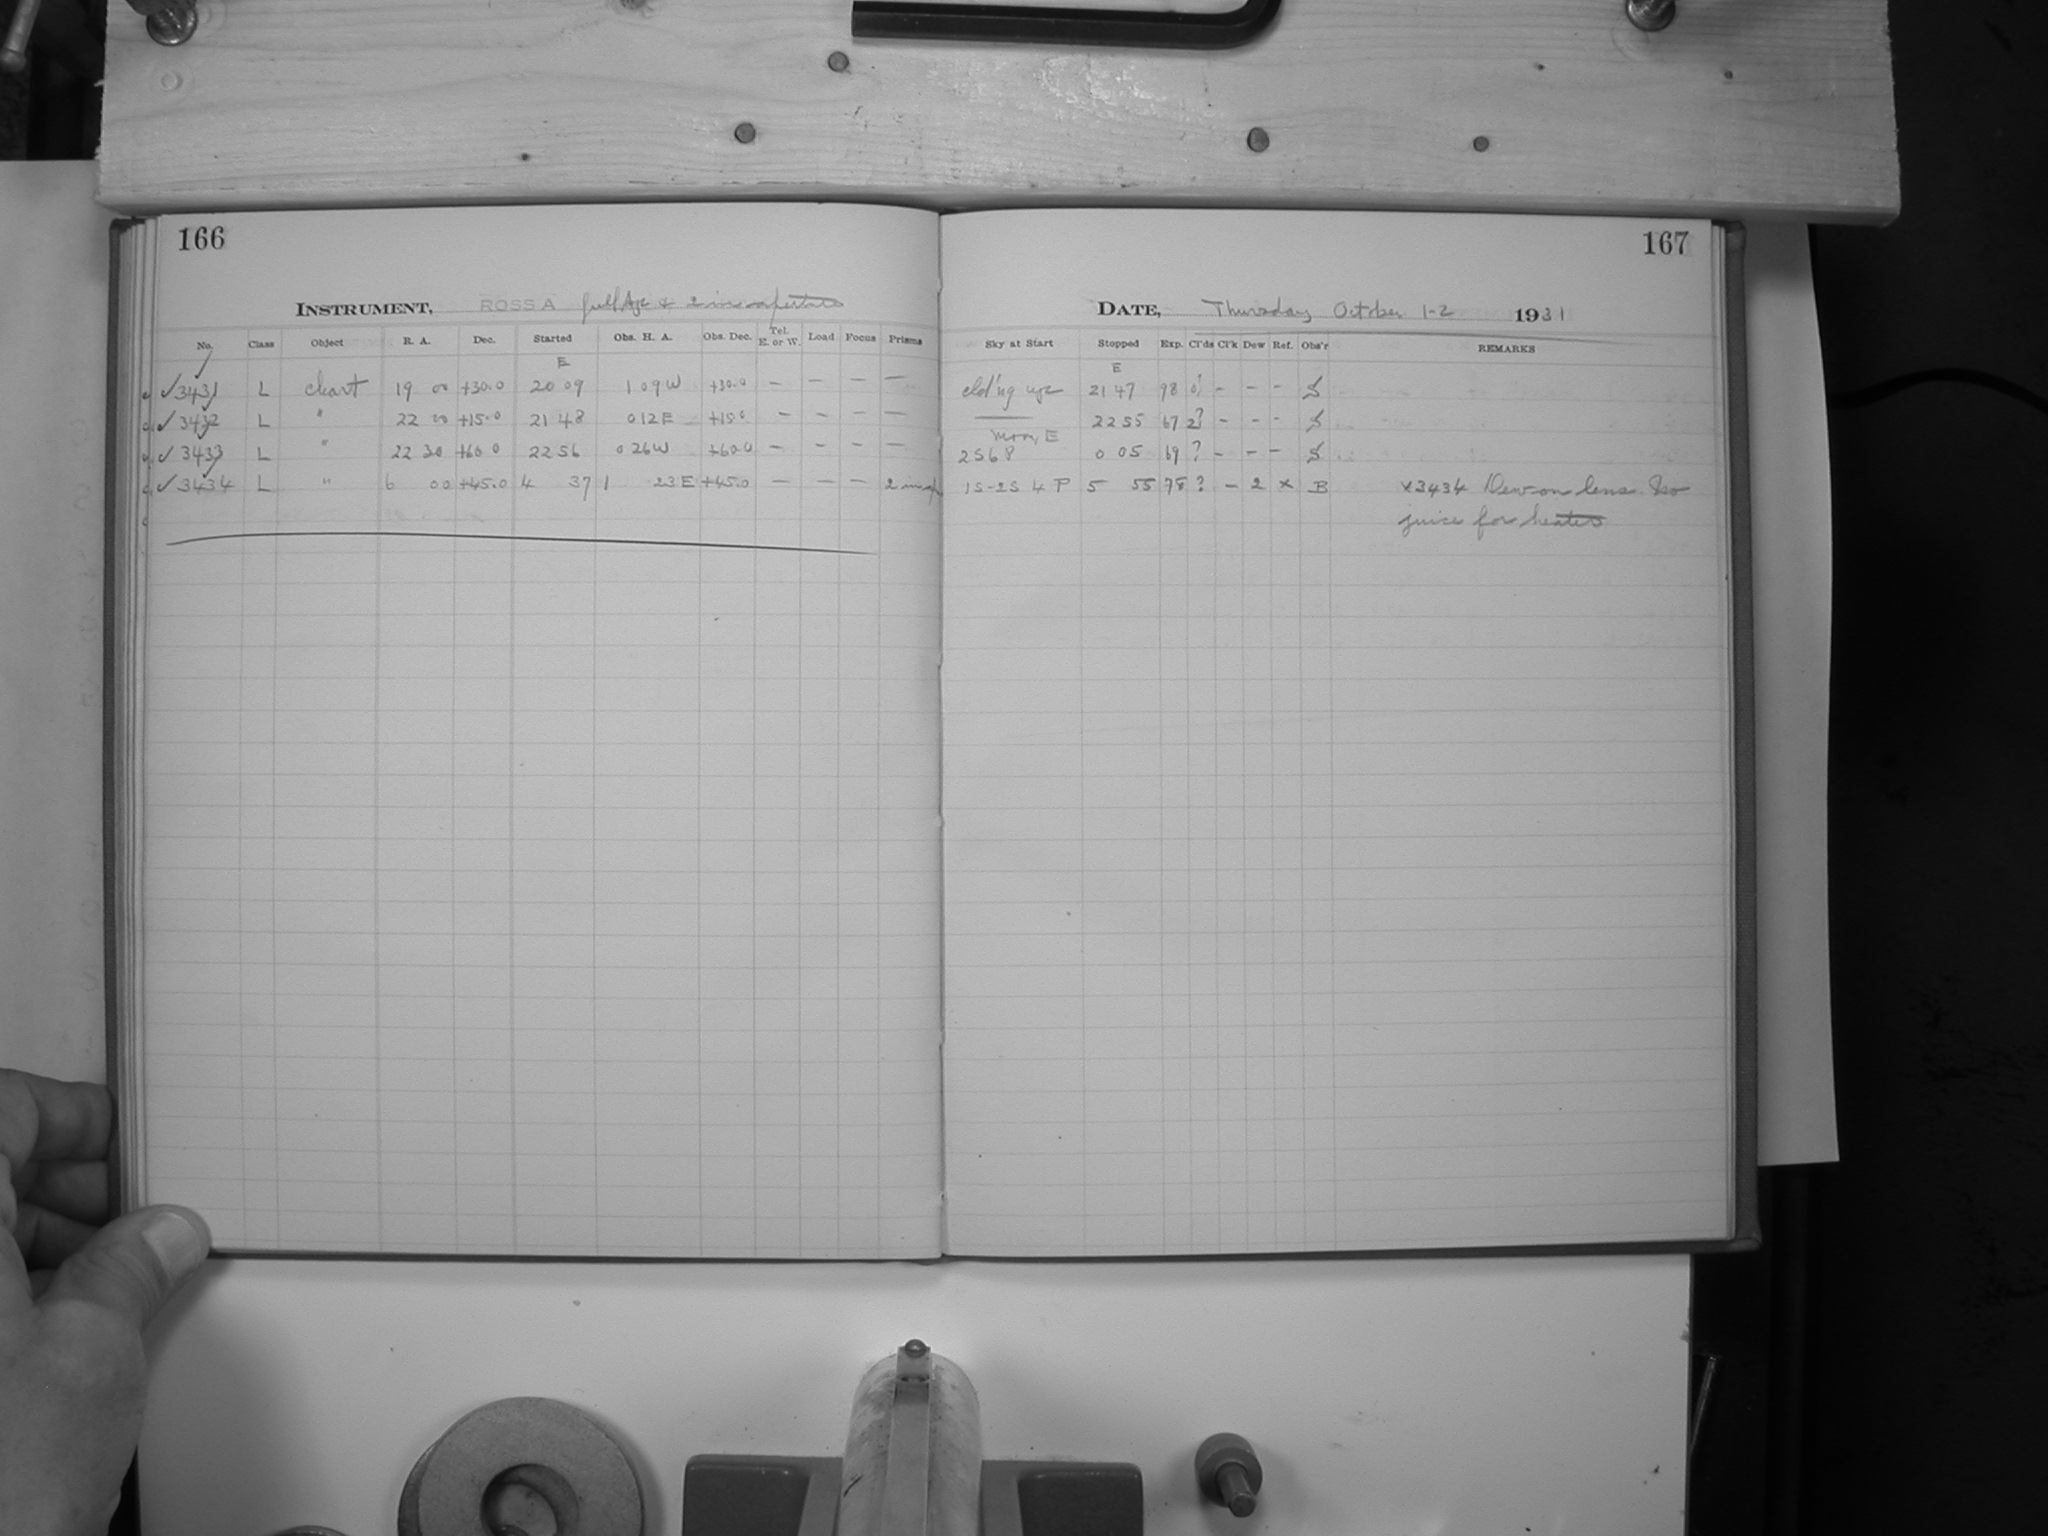 166
INSTRUMENT, ROSS A full Ap & 2 in apertures
No. Class Object R. A. Dec. Started Obs. H. A. Obs. Dec. Tel. E. or W. Load Focus Prisms
E
✓ 3431 L chart 19 00 +30.0 20 09 1 09 W +30.0 – – – –
✓ 3432 L " 22 00 +15.0 21 48 0 12 E +15.0 – – – –
✓ 3433 L " 22 30 +60.0 22 56 0 26 W +60.0 – – – –
✓ 3434 L " 6 00 +45.0 4 37 1 23 E +45.0 – – – 2 in
167
DATE, Thursday October 1-2 1931
Sky at Start Stopped Exp. Cl'ds Cl'k Dew Ref. Obs'r REMARKS
E
cld'ng up 21 47 98 ? – – – S
22 55 67 2? – – – S
moon E
2S6P 0 05 69 ? – – – S
1S-2S 4 P 5 55 78 ? – 2 x B x3434 Dew on lens. No
juice for heaters